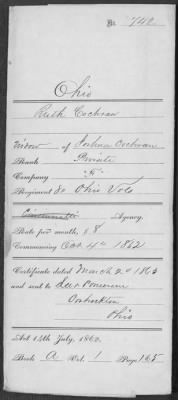 No. 740
Ohio
Ruth Cochran
Widow of Joshua Cochran
Rank Private
Company "K"
Regiment 80 Ohio Vols
Cincinnati Agency.
Rate per month, $8
Commencing Oct 4th 1862
Certificate dated March 20 1863
and sent to
Ohio
Act 14th July, 1862.
Book A Vol. 1 Page 165